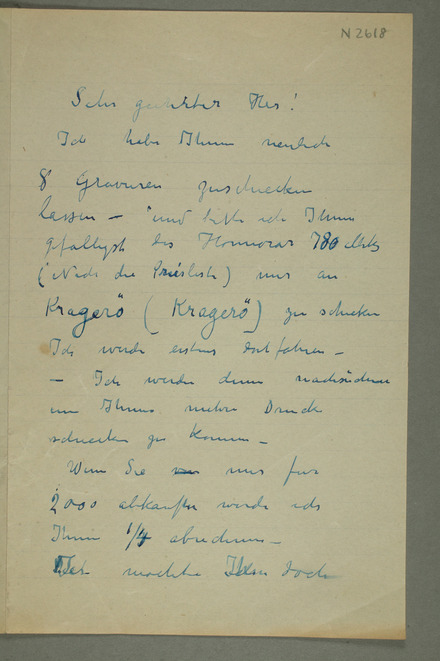 N 2618
Sehr geehrter Her!
Ich habe Ihnen neulich
8 Gravuren zuschicken
lassen – und bitte ich Ihnen
gefälligst das Honnorar 780 Mk
(Nach die Preisliste) mir an
Kragerö (Kragerö) zu schicken
Ich werde erstens dort fahren –
– Ich werde denn
um Ihnen mehre Drucke
schicken zu können –
Wenn Sie mir für
2000 abkaufte würde ich
Ihnen 1/4 abrechnen –
möchte doch